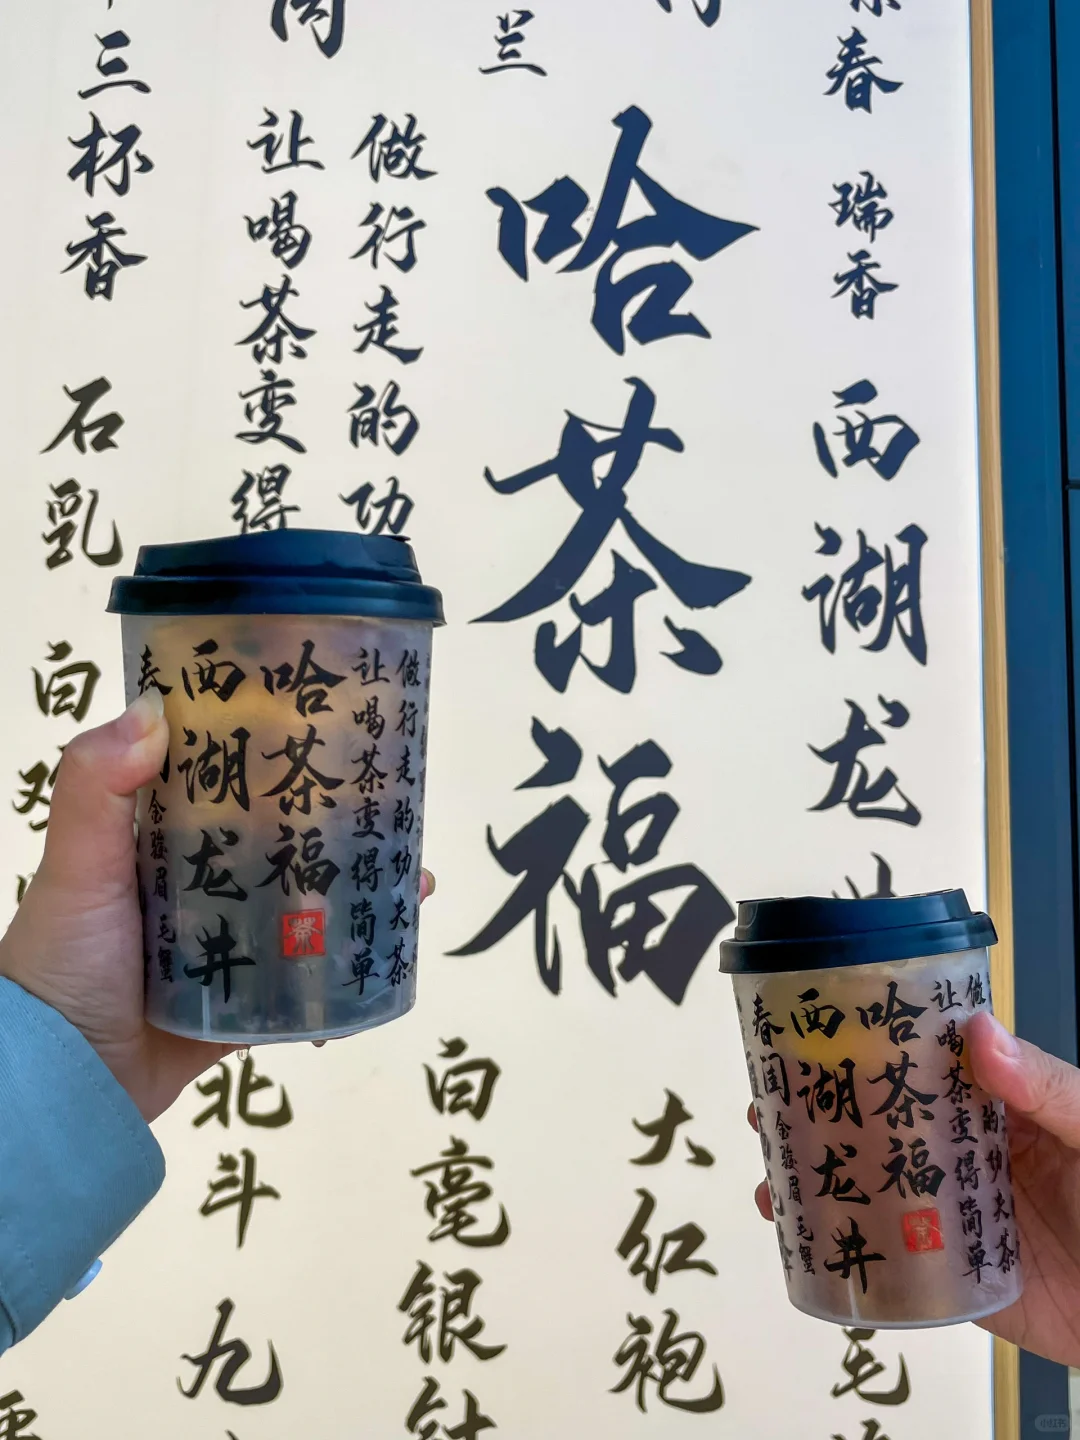 春
瑞香
西湖龙井
兰
哈茶福
大红袍
毛
做行走的功
让喝茶变得
白毫银针
三杯香
石乳
白鸡
北斗
九
做行走的功夫茶
让喝茶变得简单
哈茶福
茶
西湖龙井
春
金骏眉
毛蟹
做
的功夫茶
让喝茶变得简单
哈茶福
茶
西湖龙井
春闺
金骏眉
毛蟹
小红书